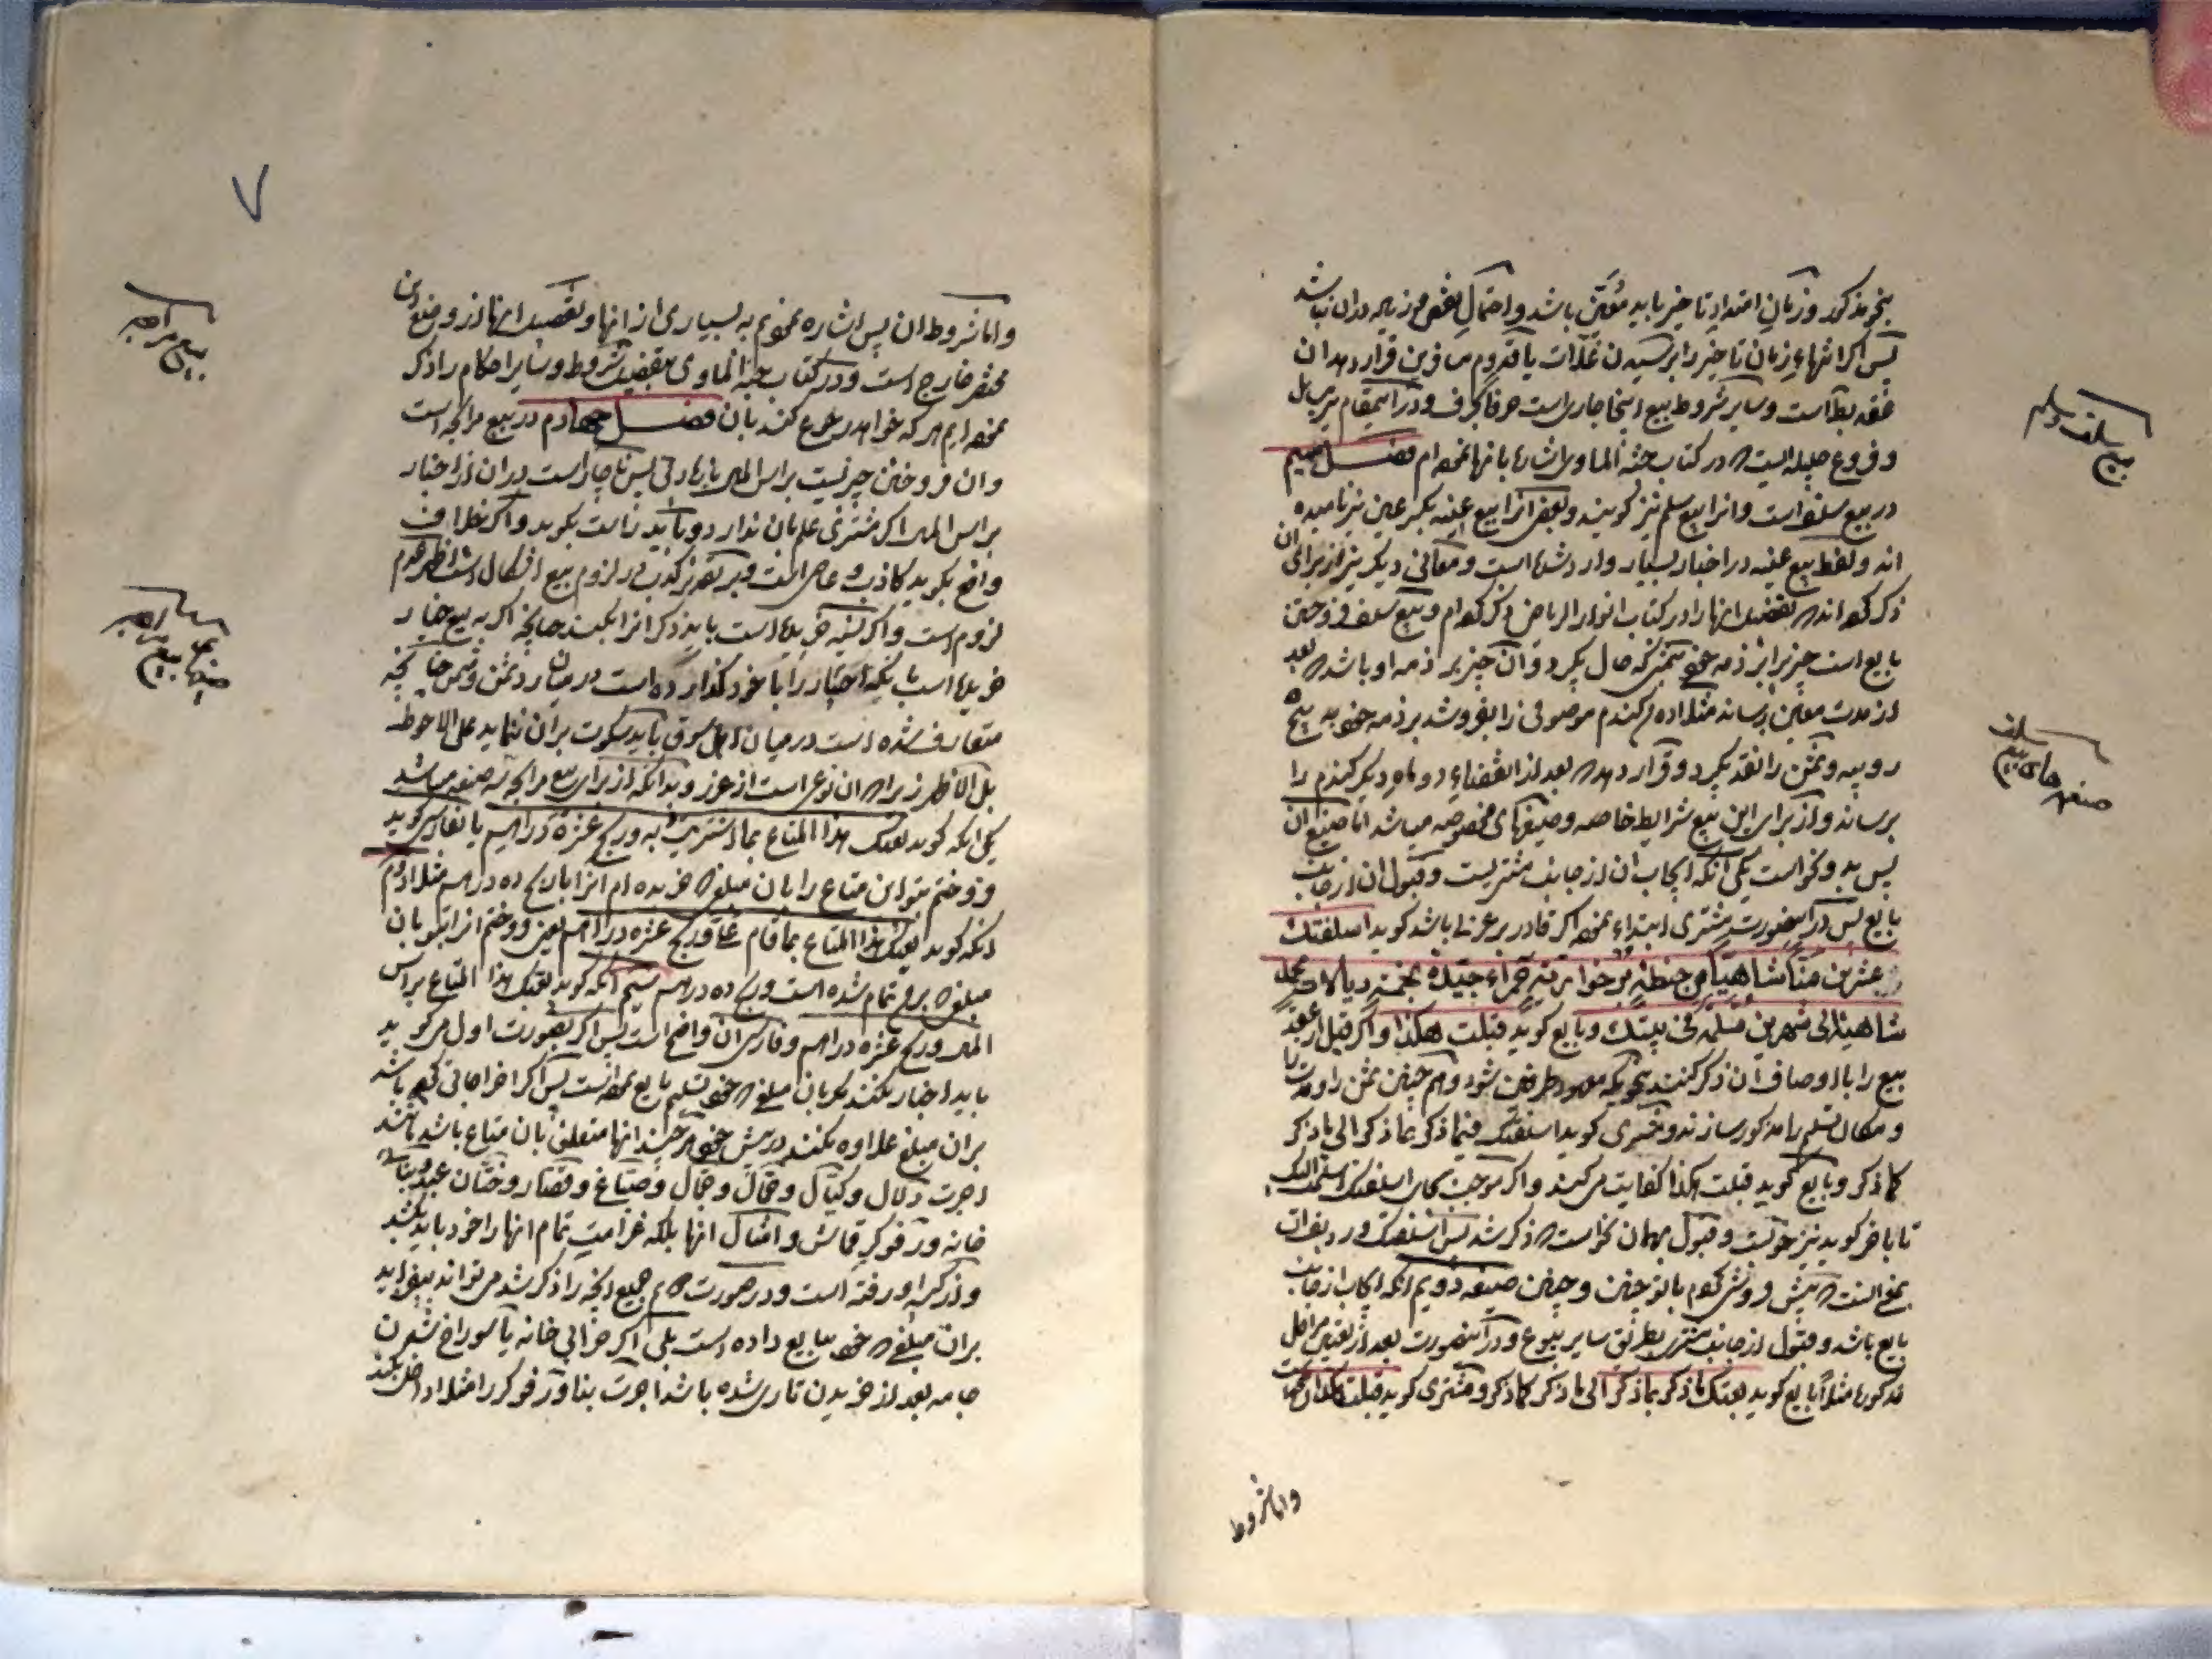 بیع سلف و سلم
صیغه های بیع سلف
بخرد مذکور و زمان امتداد تاخیر باید معین باشد و احتمال نقص و زیاده در ان نباشد
پس اگر انتهاء زمان تاخیر را برسیدن غلات یا قدوم مسافرین قرار دهد ان
عقد بط است و سایر شروط بیع اینجا جاری است حرفا بحرف و در اینمقام نیز مسائل
و فروع جلیله ایست که در کتاب جنة الماوی اشاره بانها نموده ام فصل سیم
در بیع سلف است و انرا بیع سلم نیز گویند و بعض انرا بیع عینه بکسر عین نیز نامیده
اند و لفظ بیع عینه در اخبار بسیار وارد شده است و معانی دیگر نیز از برای ان
ذکر کرده اند که تفصیل انها را در کتاب انوار الریاض ذکر کرده ام و بیع سلف فروختن
بایع است چیزیرا بر ذمه خود بثمنی که حال بگیرد و ان چیز بر ذمه او باشد که بعد
از مدت معین برساند مثلا ده من گندم موصوفی را بفروشد بر ذمه خود به پنج
روپیه و ثمن را نقد بگیرد و قرار دهد که بعد از انقضاء دو ماه دیگر گندم را
برساند و از برای این بیع شرایط خاصه و صیغهای مخصوصه میباشد اما صیغ ان
پس بدو نحو است یکی انکه ایجاب ان از جانب مشتریست و قبول ان از جانب
بایع پس در اینصورت مشتری ابتداء نموده اگر قادر بر عربی باشد گوید اسلفتك
عشرین منا شاهیا من حنطة حمراء جیدة بخمسة
شاهیة الی شهرین مسلمة فی بیتك و بایع گوید قبلت هکذا و اگر قبل از عقد
بیع را با اوصاف ان ذکر کنند بنحویکه معهود طرفین شود و هم چنین ثمن را و مدت را
و مکان تسلیم را مذکور سازند و مشتری گوید اسلفتك فیما ذکر بما ذکر الی ما ذکر
کما ذکر و بایع گوید قبلت هکذا کفایت می کند و اگر موجب بجای اسلفتك اسلمتك
تا باخر گوید نیز خوبست و قبول بهمان نحو است که ذکر شد پس اسلفتك
بمعنی انست که پیش فروش کردم بتو چنین و چنین صیغه دویم انکه ایجاب از جانب
بایع باشد و قبول از جانب مشتری بطریق سایر بیوع و در اینصورت بعد از تعیین مراحل
مذکوره مثلا بایع گوید بعتك ما ذکر بما ذکر الی ما ذکر کما ذکر و مشتری گوید قبلت هکذا
و اما شروط
۷
بیع مرابحه
صیغهای بیع مرابحه
و اما شروط ان پس اشاره نمودیم به بسیاری از انها و تفصیل انها از وضع این
مختصر خارج است و در کتاب جنة الماوی تفصیل شروط و سایر احکام را ذکر
نموده ایم هر که خواهد رجوع کند بان فصل چهارم در بیع مرابحه است
و ان فروختن چیزیست براس المال با زیادتی پس ناچار است در ان از اخبار
براس المال اگر مشتری علم بان ندارد و باید راست بگوید و اگر بخلاف
واقع بگوید کاذب و عاصی است و بر تقدیر کذب در لزوم بیع اشکال است اظهر عدم
لزوم است و اگر نسیه خریده است باید ذکر انرا بکند چنانچه اگر به بیع خیار
خریده است باینکه اختیار را با خود گذارده است در میان رد ثمن و مثمن چنانچه
متعارف شده است در میان اهل سوق باید سکوت بران ننماید علی الاحوط
بل الاظهر زیرا که ان نوعی است از غرر و بدانکه از برای بیع مرابحه سه صیغه میباشد
یکی انکه گوید بعتك هذا المتاع بما اشتریت به و ربح عشرة دراهم یا بفارسی گوید
فروختم بتو این متاع را بان مبلغ که خریده ام انرا با ربح ده درهم مثلا دویم
انکه گوید بعتك هذا المتاع بما قام علی و ربح عشرة دراهم یعنی فروختم انرا بتو بان
مبلغ که بر من تمام شده است و ربح ده درهم سیم انکه گوید بعتك هذا المتاع براس
المال و ربح عشرة دراهم و فارسی ان واضح است پس اگر بصورت اول می گوید
باید اخبار نکند مگر بان مبلغ که خود تسلیم بایع نموده است پس اگر اخراجاتی کرده باشد
بران مبلغ علاوه نکند در پیش خود هر چند انها متعلق بان متاع باشد مانند
اجرت دلال و کیال و حمال و جمال و صباغ و قصار و ختان عبد و بنا
خانه و رفوگر قماش و امثال انها بلکه غرامت تمام انها را خود باید بکشد
و از کیسه او رفته است و در صورت دویم جمیع انچه را ذکر شد می تواند بیفزاید
بران مبلغ که خود ببایع داده است بلی اگر خرابی خانه یا سوراخ شدن
جامه بعد از خریدن تاری شده باشد اجرت بنا و رفوگر را مثلا داخل نکند